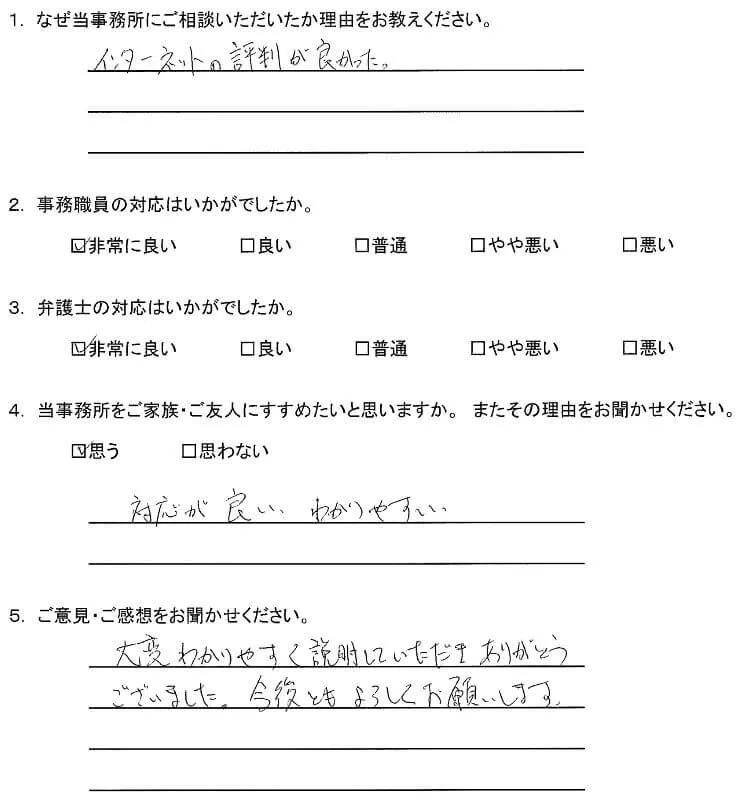 1. なぜ当事務所にご相談いただいたか理由をお教えください。
インターネットの評判が良かった。
2. 事務職員の対応はいかがでしたか。
☑非常に良い □良い □普通 □やや悪い □悪い
3. 弁護士の対応はいかがでしたか。
☑非常に良い □良い □普通 □やや悪い □悪い
4. 当事務所をご家族・ご友人にすすめたいと思いますか。 またその理由をお聞かせください。
☑思う □思わない
対応が良い、わかりやすい、
5. ご意見・ご感想をお聞かせください。
大変わかりやすく説明していただきありがとう
ございました。今後ともよろしくお願いします。